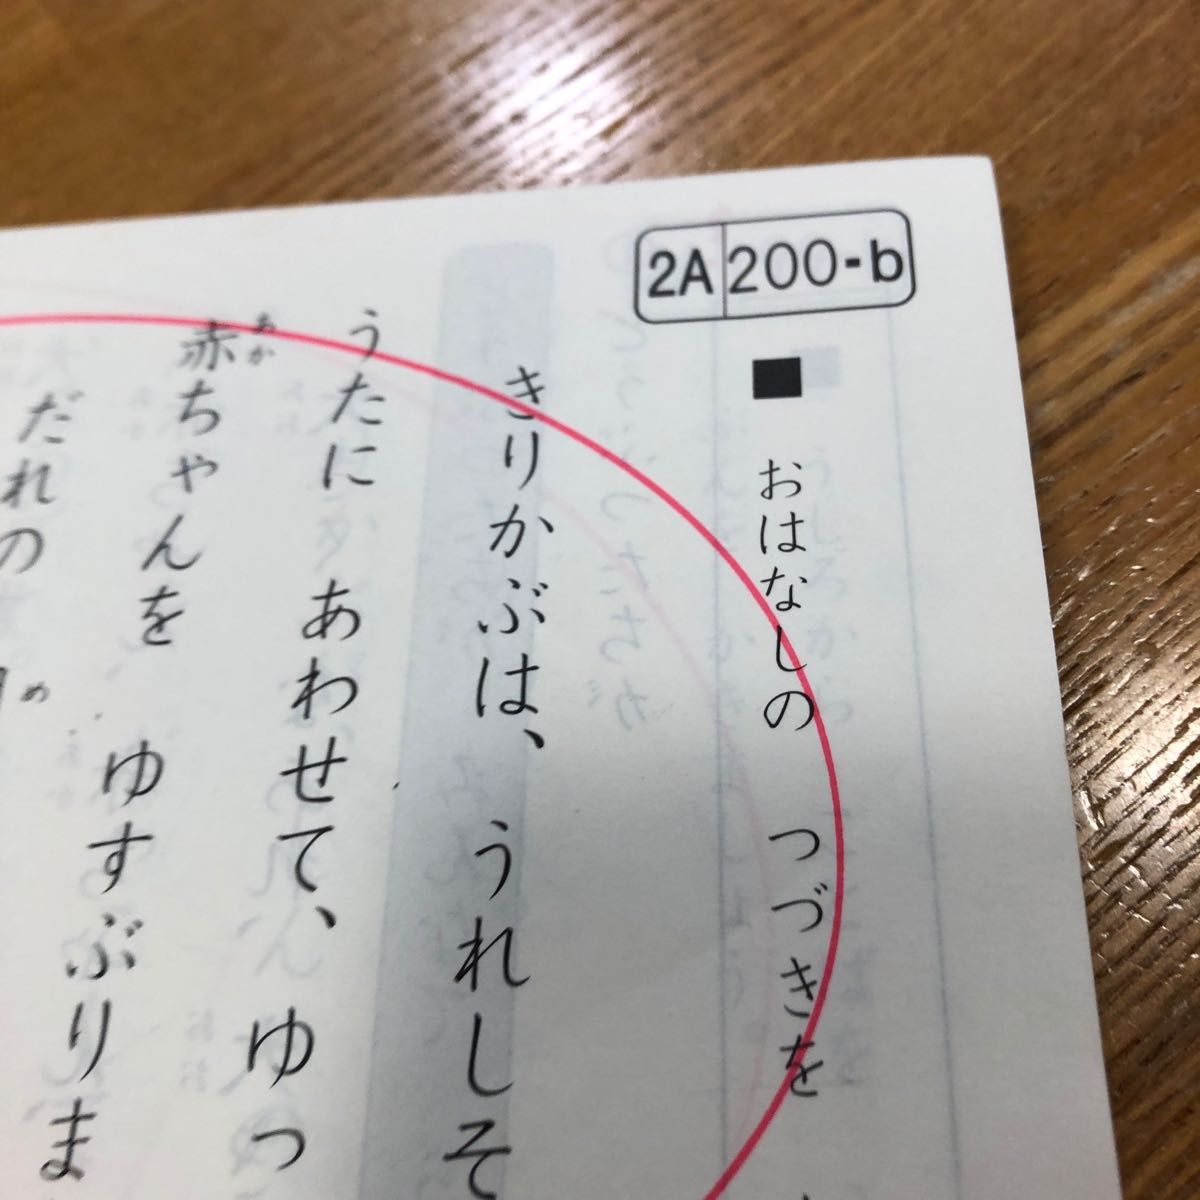 2A 200-b
■ おはなしの つづきを
きりかぶは、 うれしそ
うたに あわせて、 ゆっ
赤ちゃんを ゆすぶりま
あか
だれの
め